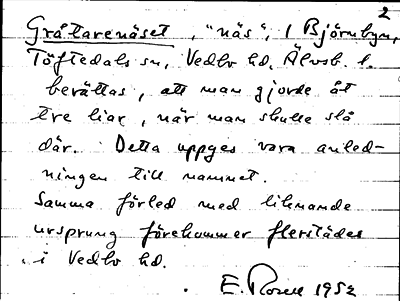 2
Gråtarenäset, "näs", i Björnbyn,
Töftedals sn, Vedbo hd, Älvsb. l.
berättas, att man gjorde åt
tre liar, när man skulle slå
där. Detta uppges vara anled-
ningen till namnet.
Samma förled med liknande
ursprung förekommer flerstädes
i Vedbo hd.
E. Rosell 1952